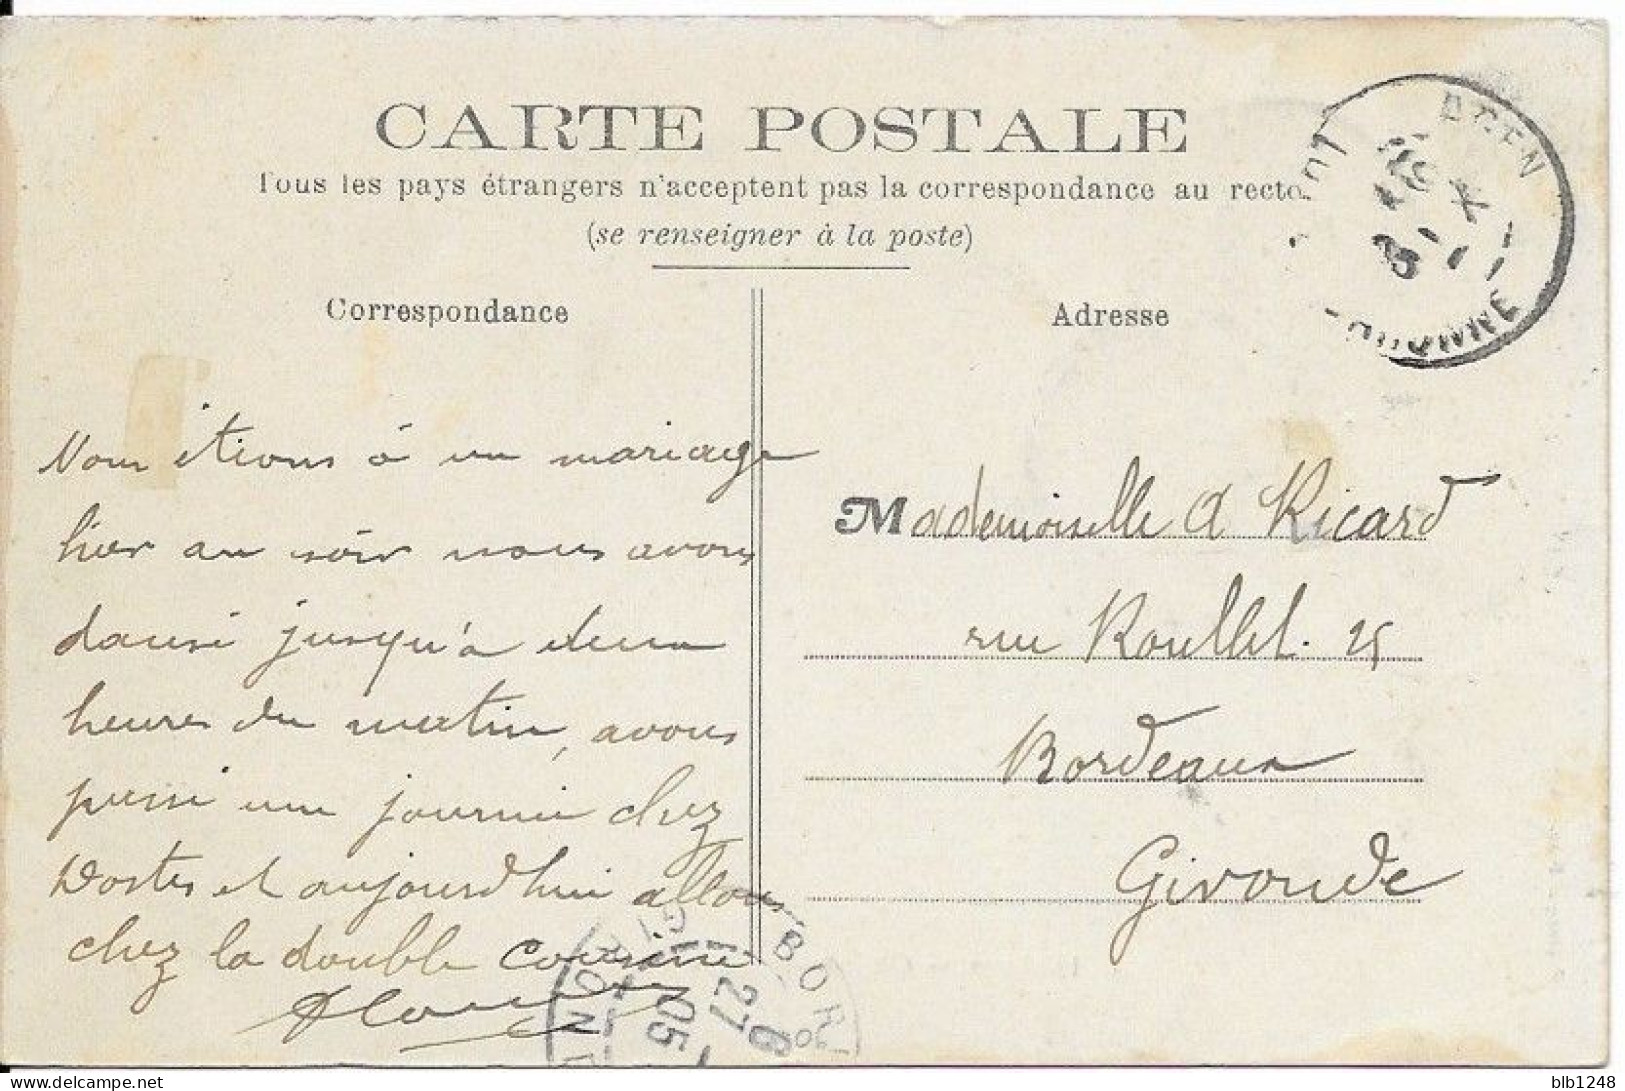 CARTE POSTALE
Tous les pays étrangers n'acceptent pas la correspondance au recto
(se renseigner à la poste)
Correspondance
Adresse
AGEN
LOT
GARONNE
Nous étions à un mariage
hier au soir nous avons
dansé jusqu'à deux
heures du matin, avons
passé une journée chez
et aujourd'hui allons
chez la double cousine
Mademoiselle A Ricard
rue Roullet. 25
Bordeaux
Gironde
BOR
GIRONDE
27 6
05
delcampe.net
blb1248